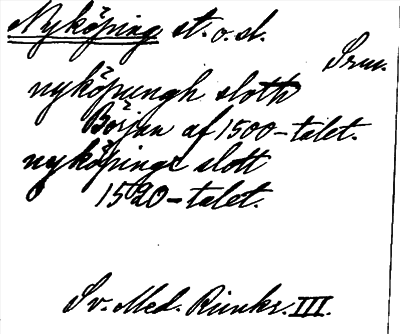 Nyköping st. o. sl.
Srm.
nyköpungh slott
Början af 1500-talet.
nyköpings slott
1520-talet.
Sv. Med. Rimkr. III.